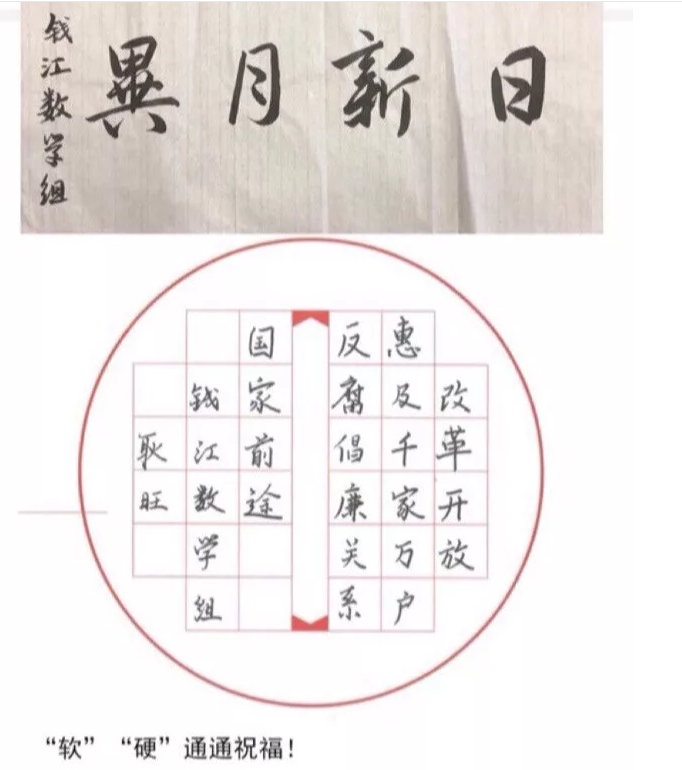 日新月異
钱江数学组
改革开放
惠及千家万户
反腐倡廉关系
国家前途
钱江数学组
耿旺
“软”“硬”通通祝福！